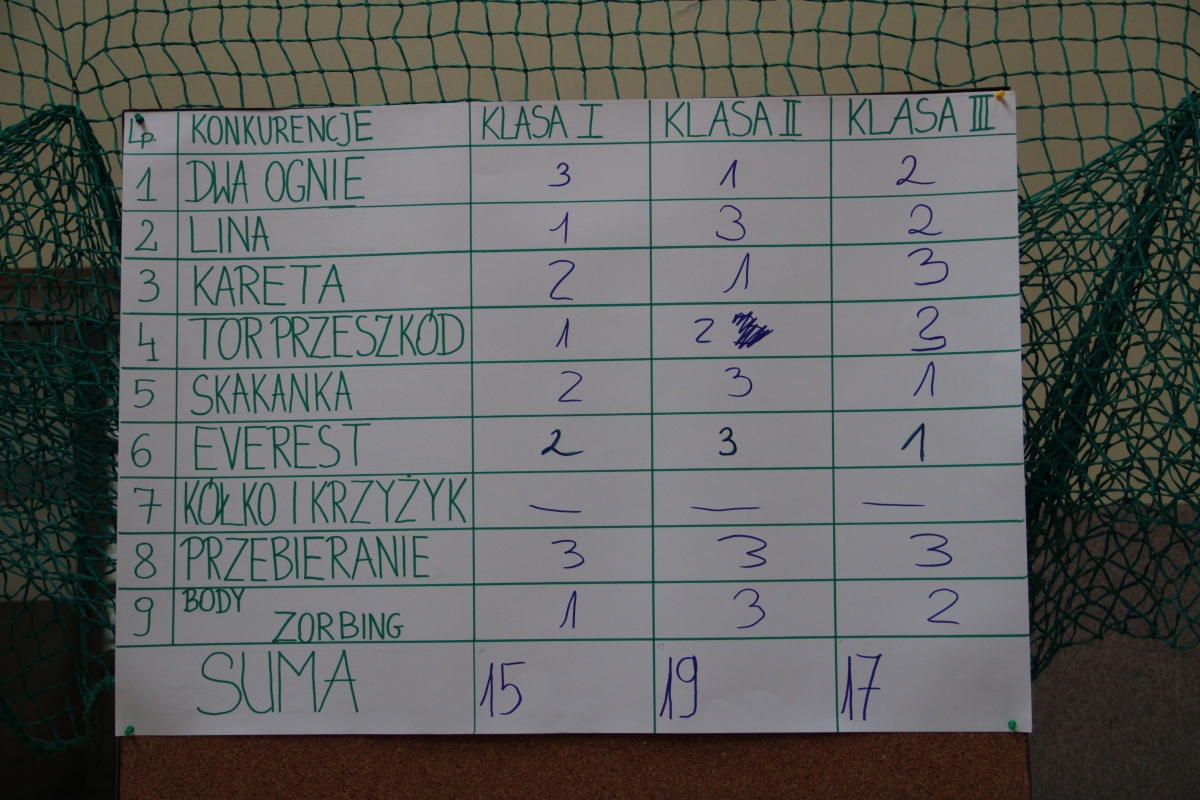 Lp. KONKURENCJE KLASA I KLASA II KLASA III
1 DWA OGNIE 3 1 2
2 LINA 1 3 2
3 KARETA 2 1 3
4 TOR PRZESZKÓD 1 2 3
5 SKAKANKA 2 3 1
6 EVEREST 2 3 1
7 KÓŁKO I KRZYŻYK — — —
8 PRZEBIERANIE 3 3 3
9 BODY ZORBING 1 3 2
SUMA 15 19 17